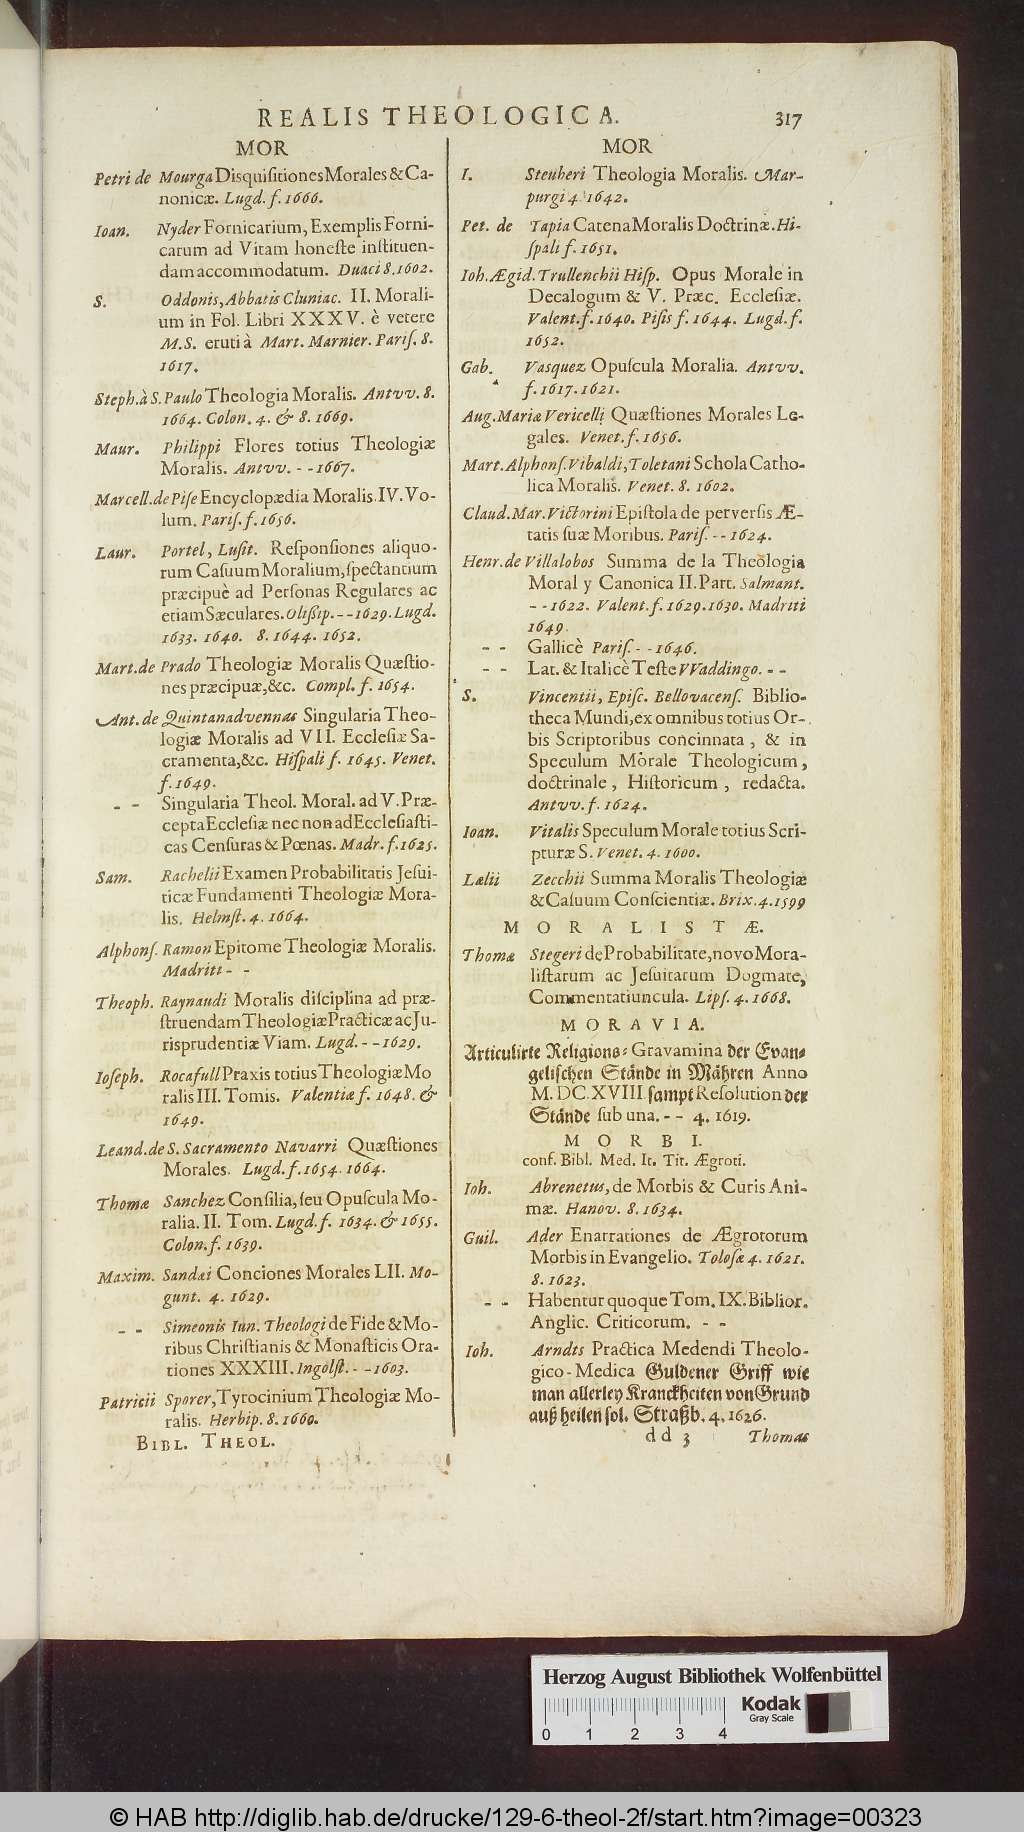 REALIS THEOLOGICA. 317
MOR
Petri de Mourga Disquiſitiones Morales & Ca-
nonicæ. Lugd. f. 1666.
Ioan. Nyder Fornicarium, Exemplis Forni-
carum ad Vitam honeſte inſtituen-
dam accommodatum. Duaci 8. 1602.
S. Oddonis, Abbatis Cluniac. II. Morali-
um in Fol. Libri XXXV. è vetere
M.S. eruti à Mart. Marnier. Pariſ. 8.
1617.
Steph. à S. Paulo Theologia Moralis. Antvv. 8.
1664. Colon. 4. & 8. 1669.
Maur. Philippi Flores totius Theologiæ
Moralis. Antvv. - - 1667.
Marcell. de Piſe Encyclopædia Moralis IV. Vo-
lum. Pariſ. f. 1656.
Laur. Portel, Luſit. Reſponſiones aliquo-
rum Caſuum Moralium, ſpectantium
præcipuè ad Perſonas Regulares ac
etiam Sæculares. Olißip. - - 1629. Lugd.
1633. 1640. 8. 1644. 1652.
Mart. de Prado Theologiæ Moralis Quæſtio-
nes præcipuæ, &c. Compl. f. 1654.
Ant. de Quintanadvennas Singularia Theo-
logiæ Moralis ad VII. Eccleſiæ Sa-
cramenta, &c. Hiſpali f. 1645. Venet.
f. 1649.
- - Singularia Theol. Moral. ad V. Præ-
cepta Eccleſiæ nec non ad Eccleſiaſti-
cas Cenſuras & Pœnas. Madr. f. 1625.
Sam. Rachelii Examen Probabilitatis Jeſui-
ticæ Fundamenti Theologiæ Mora-
lis. Helmſt. 4. 1664.
Alphonſ. Ramon Epitome Theologiæ Moralis.
Madriti - -
Theoph. Raynaudi Moralis diſciplina ad præ-
ſtruendam Theologiæ Practicæ ac Ju-
risprudentiæ Viam. Lugd. - - 1629.
Ioſeph. Rocafull Praxis totius Theologiæ Mo
ralis III. Tomis. Valentiæ f. 1648. &
1649.
Leand. de S. Sacramento Navarri Quæſtiones
Morales. Lugd. f. 1654. 1664.
Thomæ Sanchez Conſilia, ſeu Opuſcula Mo-
ralia. II. Tom. Lugd. f. 1634. & 1655.
Colon. f. 1639.
Maxim. Sandæi Conciones Morales LII. Mo-
gunt. 4. 1629.
- - Simeonis Iun. Theologi de Fide & Mo-
ribus Chriſtianis & Monaſticis Ora-
tiones XXXIII. Ingolſt. - - 1603.
Patricii Sporer, Tyrocinium Theologiæ Mo-
ralis. Herbip. 8. 1660.
BIBL. THEOL.
MOR
I. Steuberi Theologia Moralis. Mar-
purgi 4. 1642.
Pet. de Tapia Catena Moralis Doctrinæ. Hi-
ſpali f. 1651.
Ioh. Ægid. Trullenchii Hiſp. Opus Morale in
Decalogum & V. Præc. Eccleſiæ.
Valent. f. 1640. Piſis f. 1644. Lugd. f.
1652.
Gab. Vasquez Opuſcula Moralia. Antvv.
f. 1617. 1621.
Aug. Mariæ Vericelli Quæſtiones Morales Le-
gales. Venet. f. 1656.
Mart. Alphonſ. Vibaldi, Toletani Schola Catho-
lica Moralis. Venet. 8. 1602.
Claud. Mar. Victorini Epiſtola de perverſis Æ-
tatis ſuæ Moribus. Pariſ. - - 1624.
Henr. de Villalobos Summa de la Theologia
Moral y Canonica II. Part. Salmant.
- - 1622. Valent. f. 1629. 1630. Madriti
1649.
- - Gallicè Pariſ. - - 1646.
- - Lat. & Italicè Teſte VVaddingo. - -
S. Vincentii, Epiſc. Bellovacenſ. Biblio-
theca Mundi, ex omnibus totius Or-
bis Scriptoribus concinnata, & in
Speculum Morale Theologicum,
doctrinale, Hiſtoricum, redacta.
Antvv. f. 1624.
Ioan. Vitalis Speculum Morale totius Scri-
pturæ S. Venet. 4. 1600.
Lælii Zecchii Summa Moralis Theologiæ
& Caſuum Conſcientiæ. Brix. 4. 1599
MORALISTÆ.
Thomæ Stegeri de Probabilitate, novo Mora-
liſtarum ac Jeſuitarum Dogmate,
Commentatiuncula. Lipſ. 4. 1668.
MORAVIA.
Articulirte Religions- Gravamina der Evan-
geliſchen Stände in Mähren Anno
M. DC. XVIII ſampt Reſolution der
Stände ſub una. - - 4. 1619.
MORBI.
conf. Bibl. Med. It. Tit. Ægroti.
Ioh. Abrenetus, de Morbis & Curis Ani-
mæ. Hanov. 8. 1634.
Guil. Ader Enarrationes de Ægrotorum
Morbis in Evangelio. Toloſæ 4. 1621.
8. 1623.
- - Habentur quoque Tom. IX. Biblior.
Anglic. Criticorum. - -
Ioh. Arndts Practica Medendi Theolo-
gico-Medica Guldener Griff wie
man allerley Kranckheiten von Grund
auß heilen ſol. Straßb. 4. 1626.
dd 3 Thomas
Herzog August Bibliothek Wolfenbüttel
Kodak
Gray Scale
0 1 2 3 4
© HAB http://diglib.hab.de/drucke/129-6-theol-2f/start.htm?image=00323